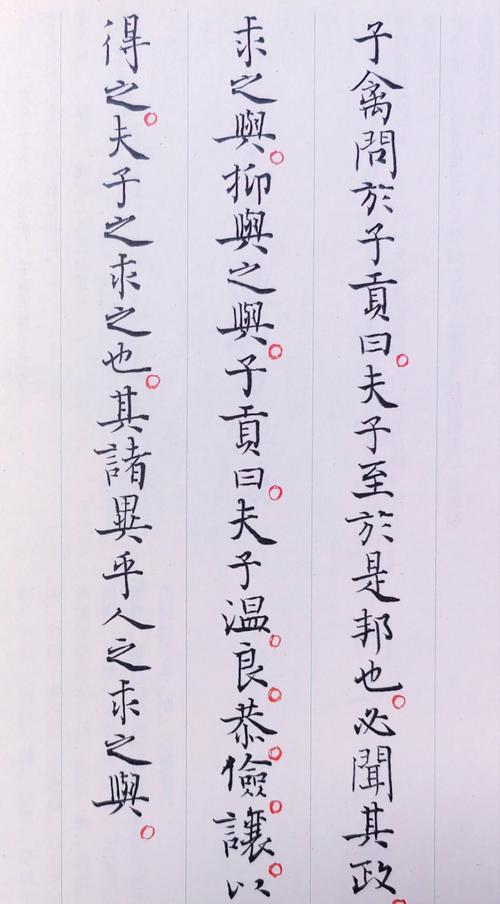 子禽問於子貢曰。夫子至於是邦也。必聞其政。
求之與。抑與之與。子貢曰。夫子温。良。恭。儉。讓。以
得之。夫子之求之也。其諸異乎人之求之與。